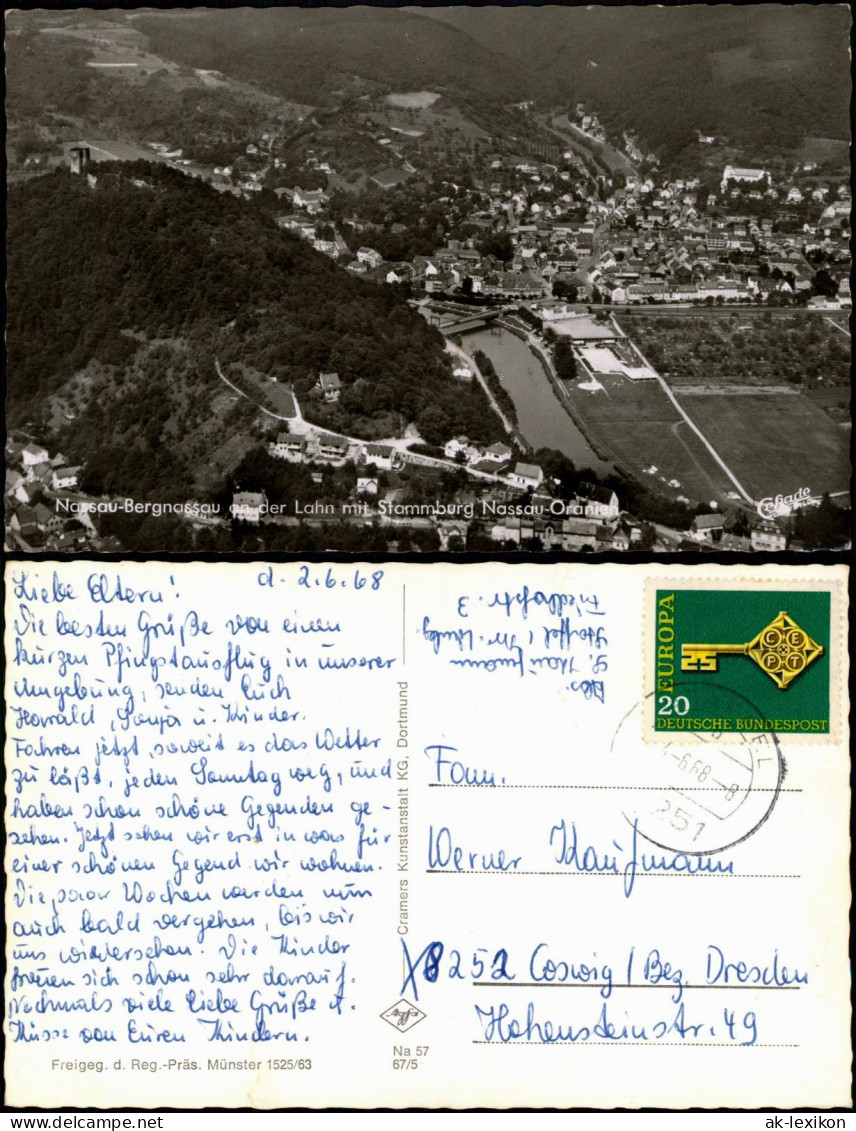 Nassau-Bergnassau an der Lahn mit Stammburg Nassau-Oranien
Cekade
Liebe Eltern! d. 2.6.68
Die besten Grüße von einem
kurzen Pfingstausflug in unserer
Umgebung, senden Euch
Harald, Sonja u. Kinder.
Fahren jetzt, soweit es das Wetter
zu läßt, jeden Sonntag weg, und
haben schon schöne Gegenden ge-
sehen. Jetzt sehen wir erst in was für
einer schönen Gegend wir wohnen.
Die paar Wochen werden nun
auch bald vergehen, bis wir
uns wiedersehen. Die Kinder
freuen sich schon sehr darauf.
Nochmals viele liebe Grüße u.
Küsse von Euren Kindern.
Freigeg. d. Reg.-Präs. Münster 1525/63
Cramers Kunstanstalt KG, Dortmund
Na 57
67/5
Abs.
Kaufmann
Friedhofstr. 3
EUROPA
CEPT
20
DEUTSCHE BUNDESPOST
-6.68-8
251
Fam.
Werner Kaufmann
8252 Coswig / Bez. Dresden
Hohensteinstr. 49
www.delcampe.net
ak-lexikon